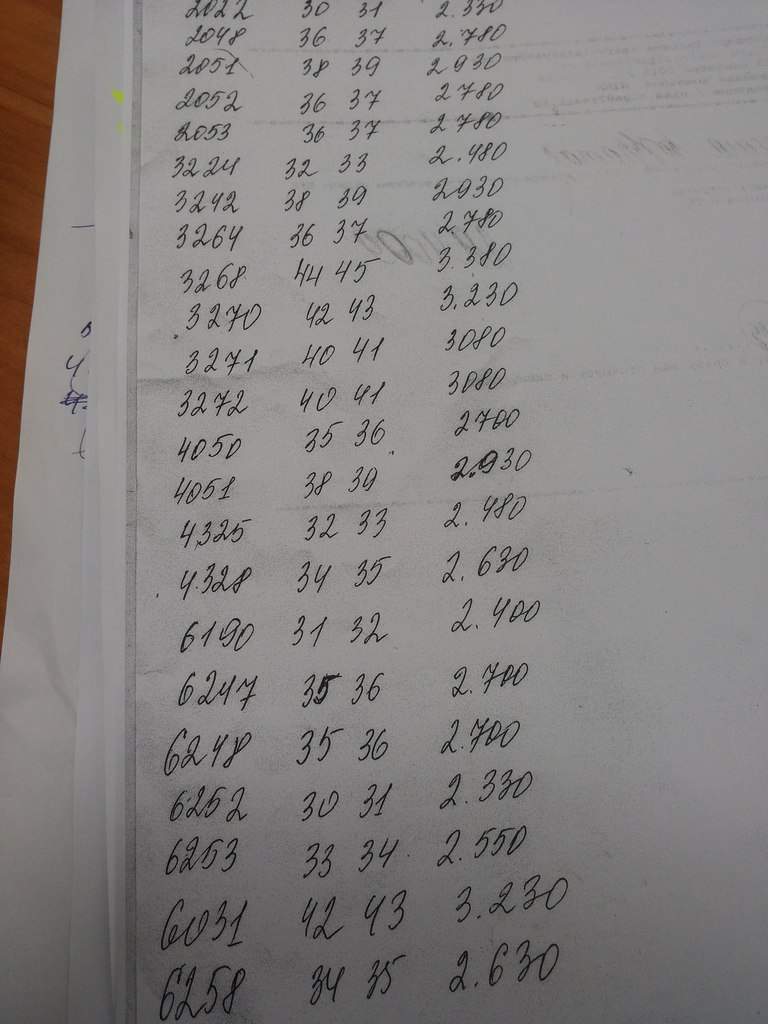 2022 30 31 2.330
2048 36 37 2.780
2051 38 39 2930
2052 36 37 2780
2053 36 37 2780
3224 32 33 2.480
3242 38 39 2930
3264 36 37 2.780
3268 44 45 3.380
3270 42 43 3.230
3271 40 41 3080
3272 40 41 3080
4050 35 36 2700
4051 38 39 2.930
4325 32 33 2.480
4.328 34 35 2.630
6190 31 32 2.400
6247 35 36 2.700
6248 35 36 2.700
6252 30 31 2.330
6253 33 34 2.550
6031 42 43 3.230
6258 34 35 2.630